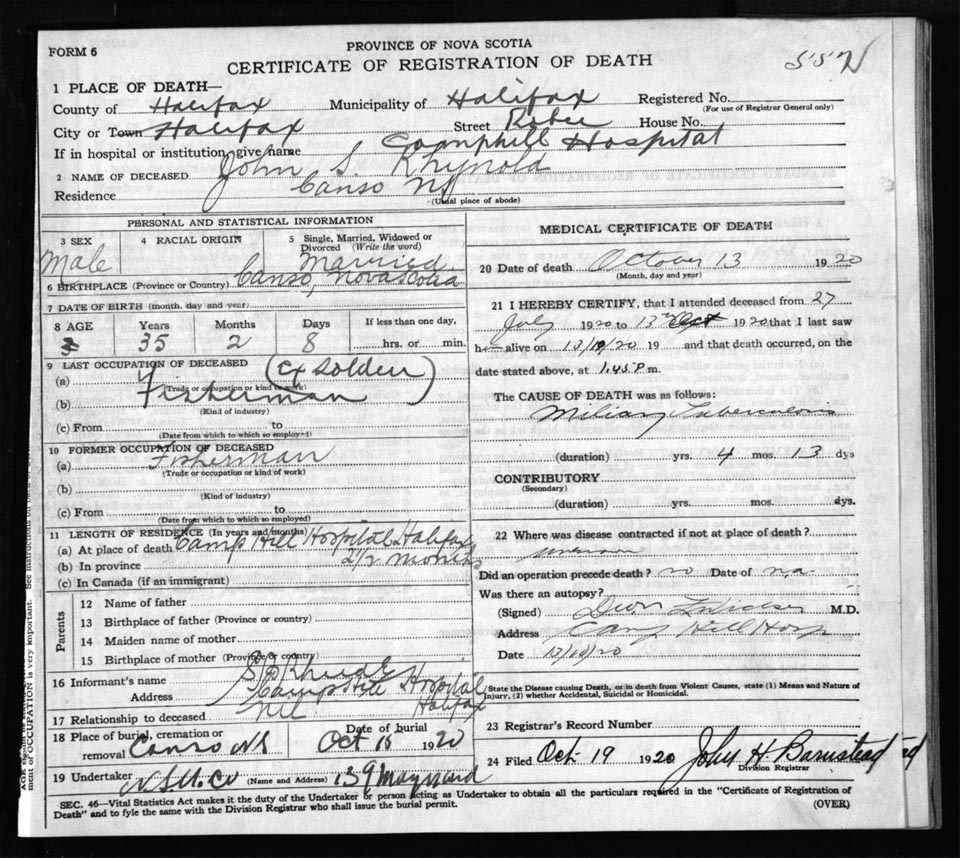 FORM 6
PROVINCE OF NOVA SCOTIA
CERTIFICATE OF REGISTRATION OF DEATH
1 PLACE OF DEATH—
County of Halifax Municipality of Halifax Registered No.
(For use of Registrar General only)
City or Town Halifax Street Robie House No.
If in hospital or institution, give name Camphill Hospital
2 NAME OF DECEASED John S. Rhynold
Residence Canso NS
(Usual place of abode)
PERSONAL AND STATISTICAL INFORMATION
3 SEX Male
4 RACIAL ORIGIN
5 Single, Married, Widowed or Divorced (Write the word) Married
6 BIRTHPLACE (Province or Country) Canso, Nova Scotia
7 DATE OF BIRTH (month, day and year)
8 AGE Years Months Days If less than one day,
35 2 8 hrs. or min.
9 LAST OCCUPATION OF DECEASED (Ex Soldier)
(a)
(Trade or occupation or kind of work)
(b) Fisherman
(Kind of industry)
(c) From to
(Date from which to which so employed)
10 FORMER OCCUPATION OF DECEASED
(a) Fisherman
(Trade or occupation or kind of work)
(b)
(Kind of industry)
(c) From to
(Date from which to which so employed)
11 LENGTH OF RESIDENCE (In years and months)
(a) At place of death Camp Hill Hospital Halifax
(b) In province 2 1/2 months
(c) In Canada (if an immigrant)
Parents
12 Name of father
13 Birthplace of father (Province or country)
14 Maiden name of mother
15 Birthplace of mother (Province or country)
16 Informant's name
Address Camp Hill Hospital Halifax
17 Relationship to deceased Nil
18 Place of burial, cremation or removal Canso NS
Date of burial Oct 15 1920
19 Undertaker N.S.U. Co (Name and Address) 139 Maynard
MEDICAL CERTIFICATE OF DEATH
20 Date of death October 13 1920
(Month, day and year)
21 I HEREBY CERTIFY, that I attended deceased from 27
July 1920 to 13th Oct 1920 that I last saw
h alive on 13/10/20 19 and that death occurred, on the
date stated above, at 1.45 P m.
The CAUSE OF DEATH was as follows:
Miliary Tuberculosis
(duration) yrs. 4 mos. 13 dys
CONTRIBUTORY
(Secondary)
(duration) yrs. mos. dys.
22 Where was disease contracted if not at place of death?
unknown
Did an operation precede death? no Date of n.a.
Was there an autopsy?
(Signed) M.D.
Address Camp Hill Hosp
Date 13/10/20
State the Disease causing Death, or in death from Violent Causes, state (1) Means and Nature of
Injury, (2) whether Accidental, Suicidal or Homicidal.
23 Registrar's Record Number
24 Filed Oct 19 1920 John H Barnstead
Division Registrar
SEC. 46—Vital Statistics Act makes it the duty of the Undertaker or person acting as Undertaker to obtain all the particulars required in the "Certificate of Registration of
Death" and to fyle the same with the Division Registrar who shall issue the burial permit.
(OVER)